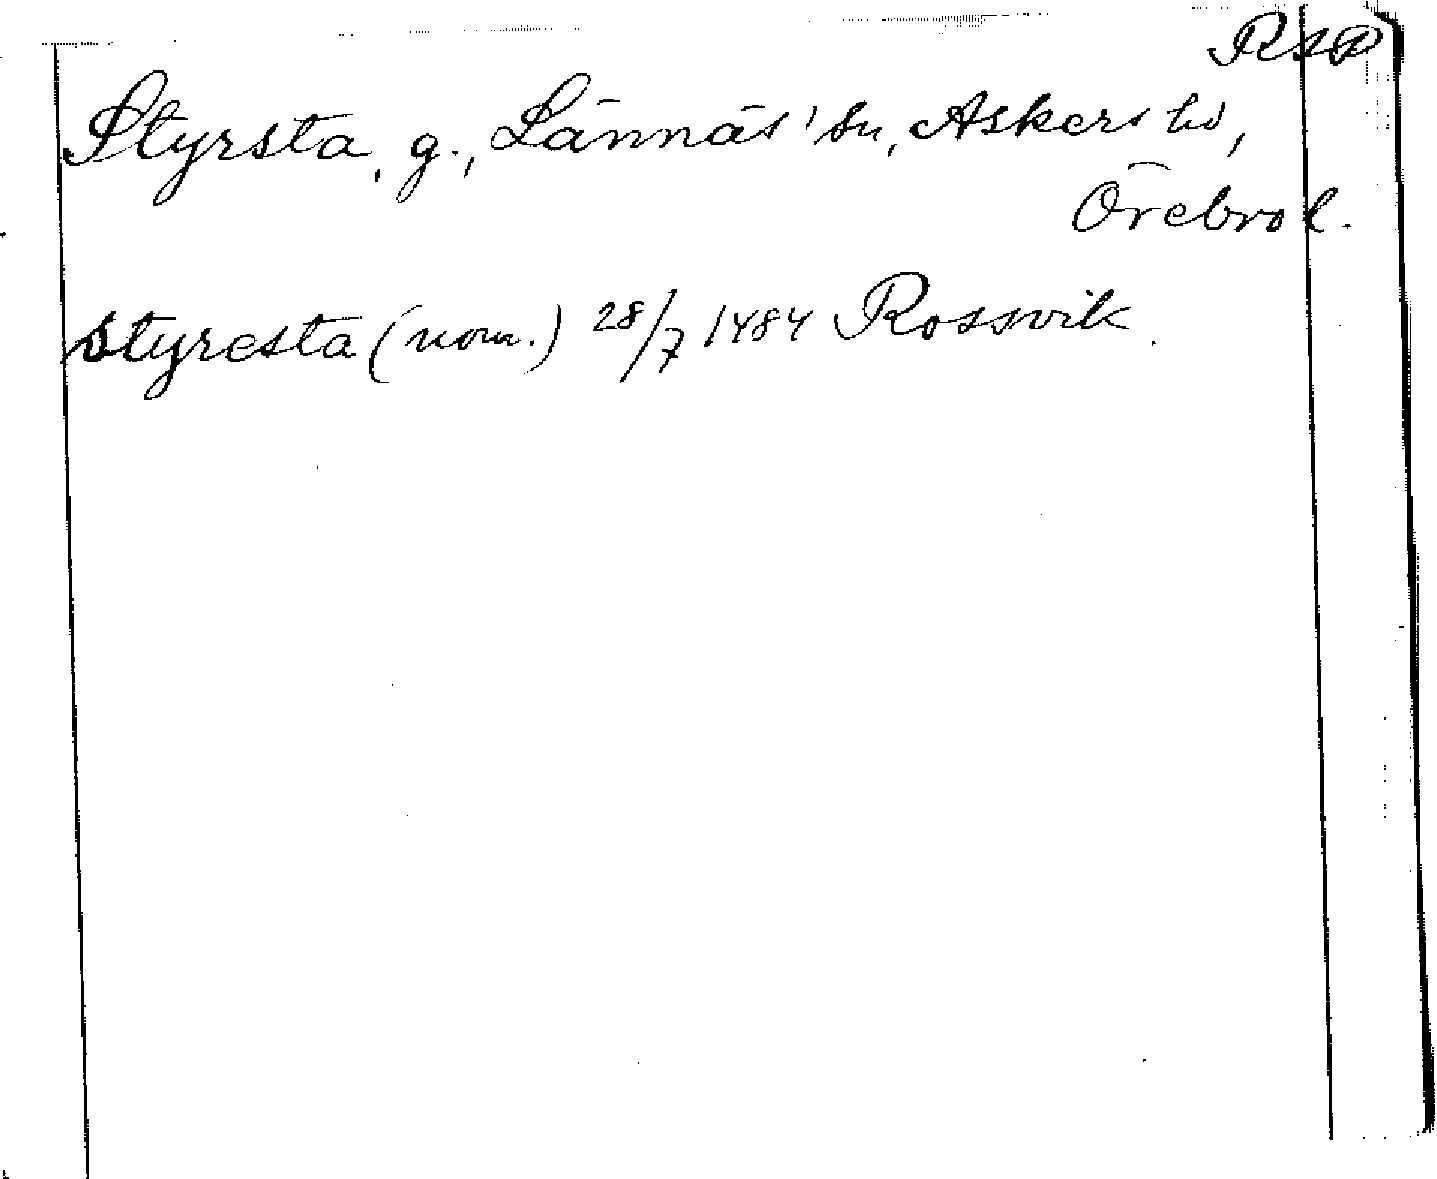 RAP
Styrsta, g., Lännäs' sn, Askers hd,
Örebro l.
Styresta (nom.) 28/7 1484 Rossvik.